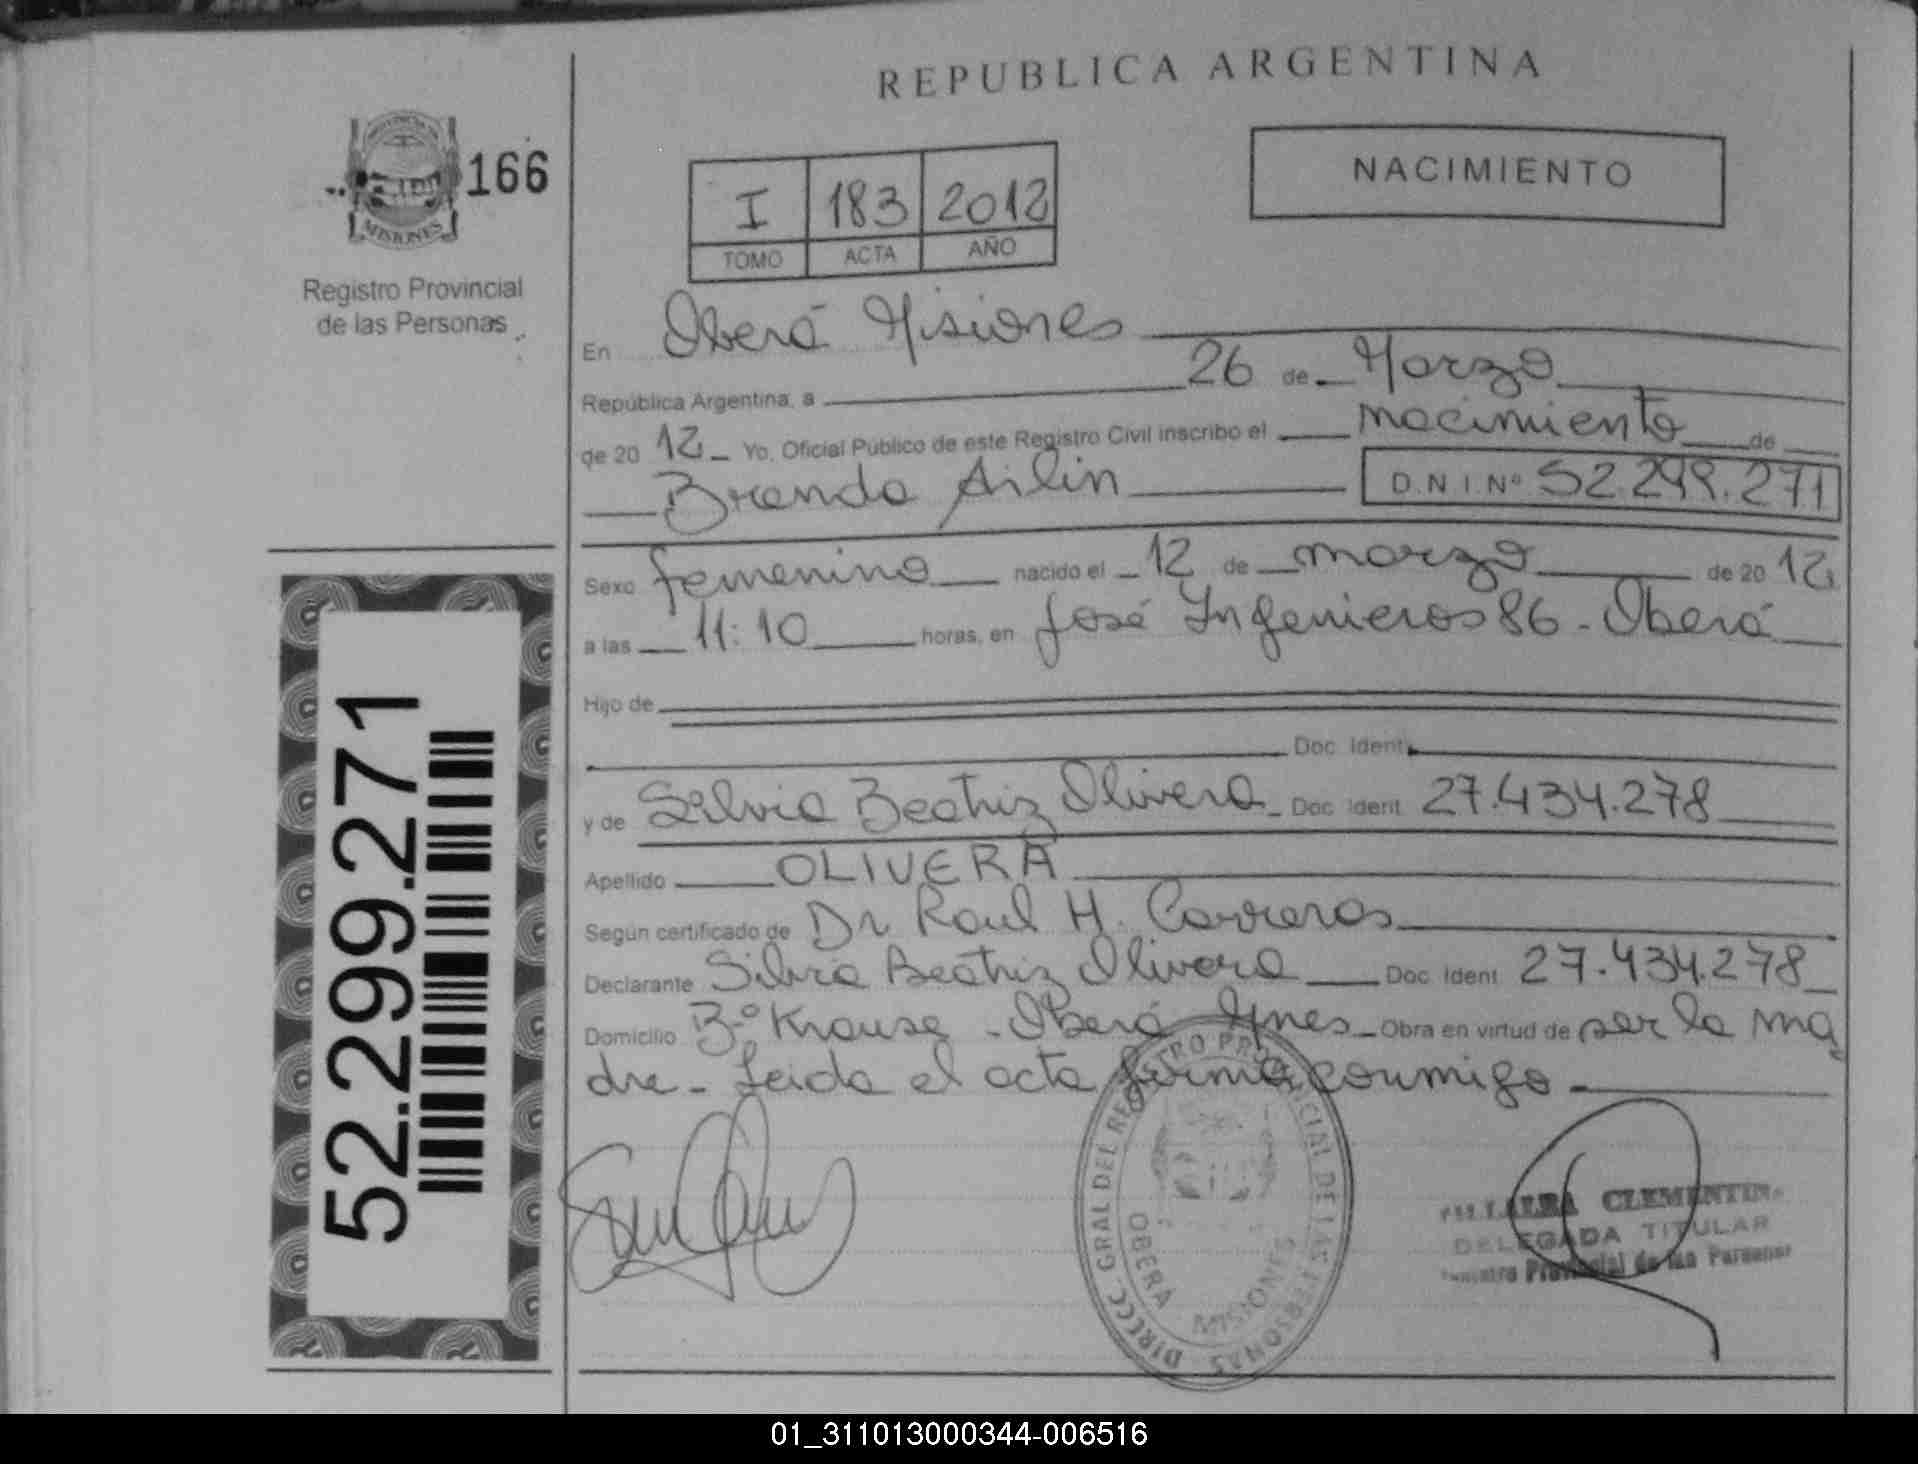 REPUBLICA ARGENTINA
PROVINCIA DE
MISIONES
166
Registro Provincial
de las Personas
I 183 2012
TOMO ACTA AÑO
NACIMIENTO
En Oberá Misiones
República Argentina, a 26 de Marzo
de 2012 Yo, Oficial Público de este Registro Civil inscribo el nacimiento de
Brenda Ailin D.N.I.Nº 52.299.271
Sexo femenino nacido el 12 de marzo de 2012
a las 11:10 horas, en José Ingenieros 86 - Oberá
Hijo de
Doc. Ident.
y de Silvia Beatriz Olivera Doc. Ident. 27.434.278
Apellido OLIVERA
Según certificado de Dr Raul H. Carreras
Declarante Silvia Beatriz Olivera Doc. Ident. 27.434.278
Domicilio Bº Krause - Oberá Mnes - Obra en virtud de ser la ma
dre - Leida el acta firma conmigo -
52.299.271
DIRECC. GRAL DEL REGISTRO PROVINCIAL DE LAS PERSONAS
OBERA MISIONES
CLEMENTINA
DELEGADA TITULAR
Registro Provincial de las Personas
01_311013000344-006516